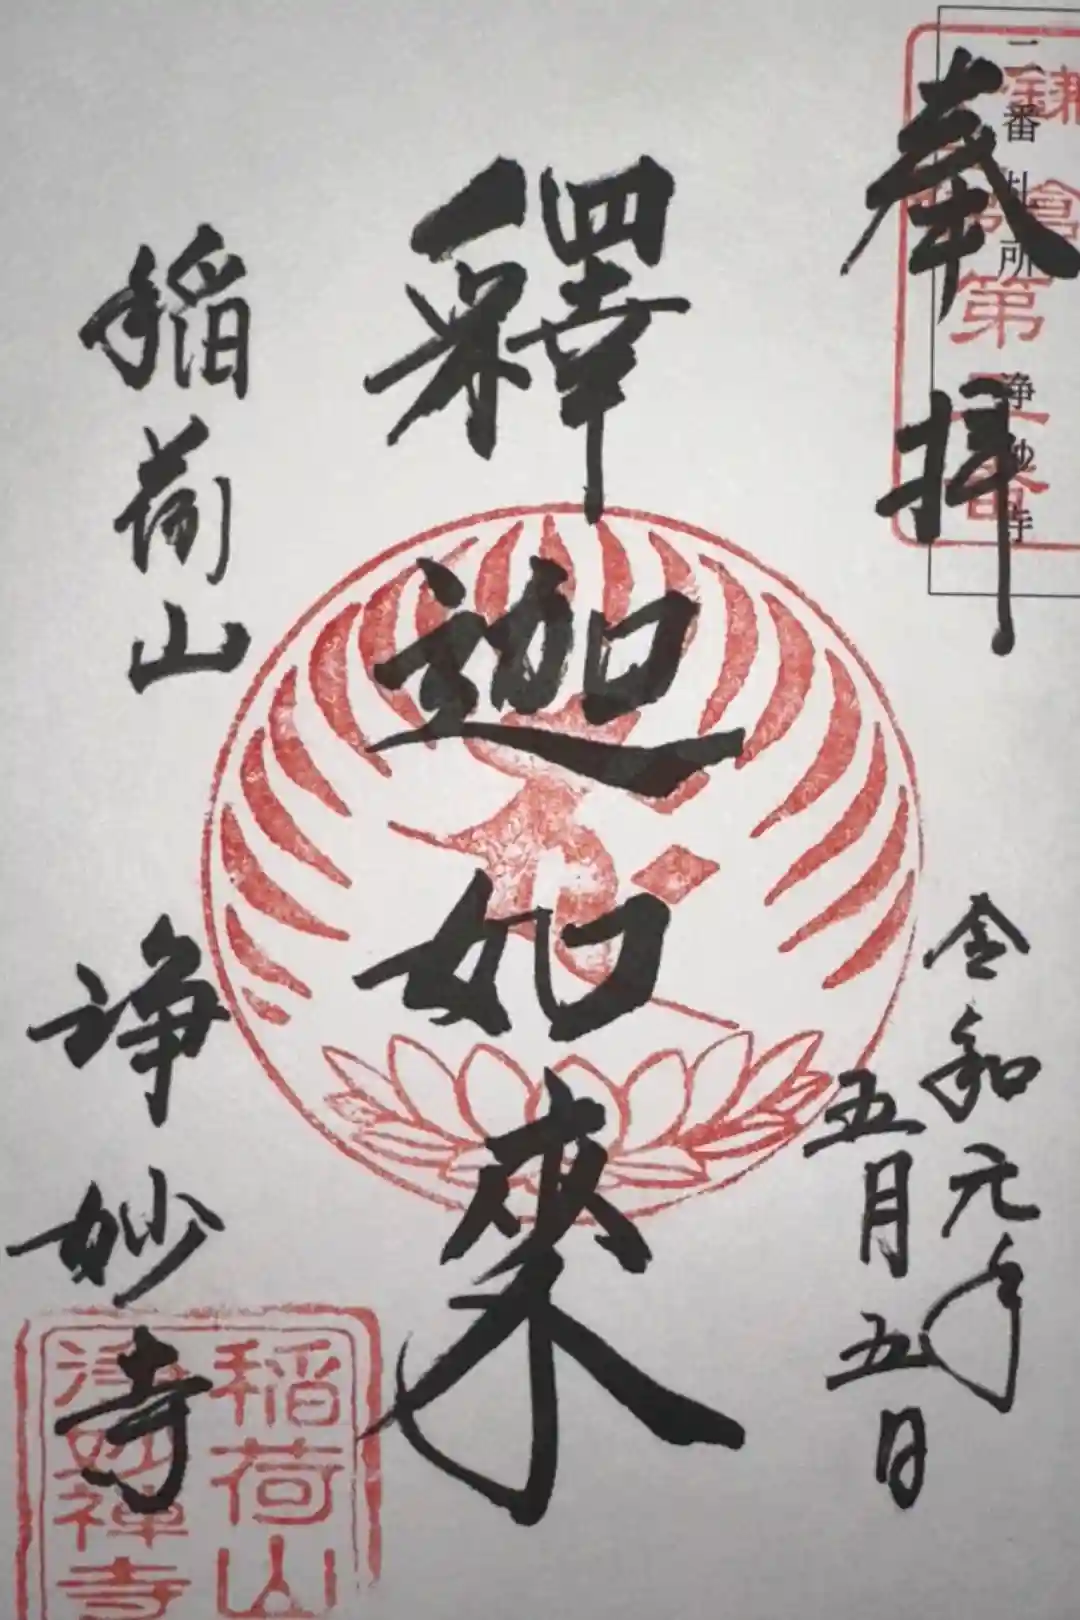 奉拝
二番札所 浄妙寺
鎌倉
第二番
令和元年
五月五日
釋迦如来
稲荷山
浄妙寺
稲荷山
浄妙禅寺